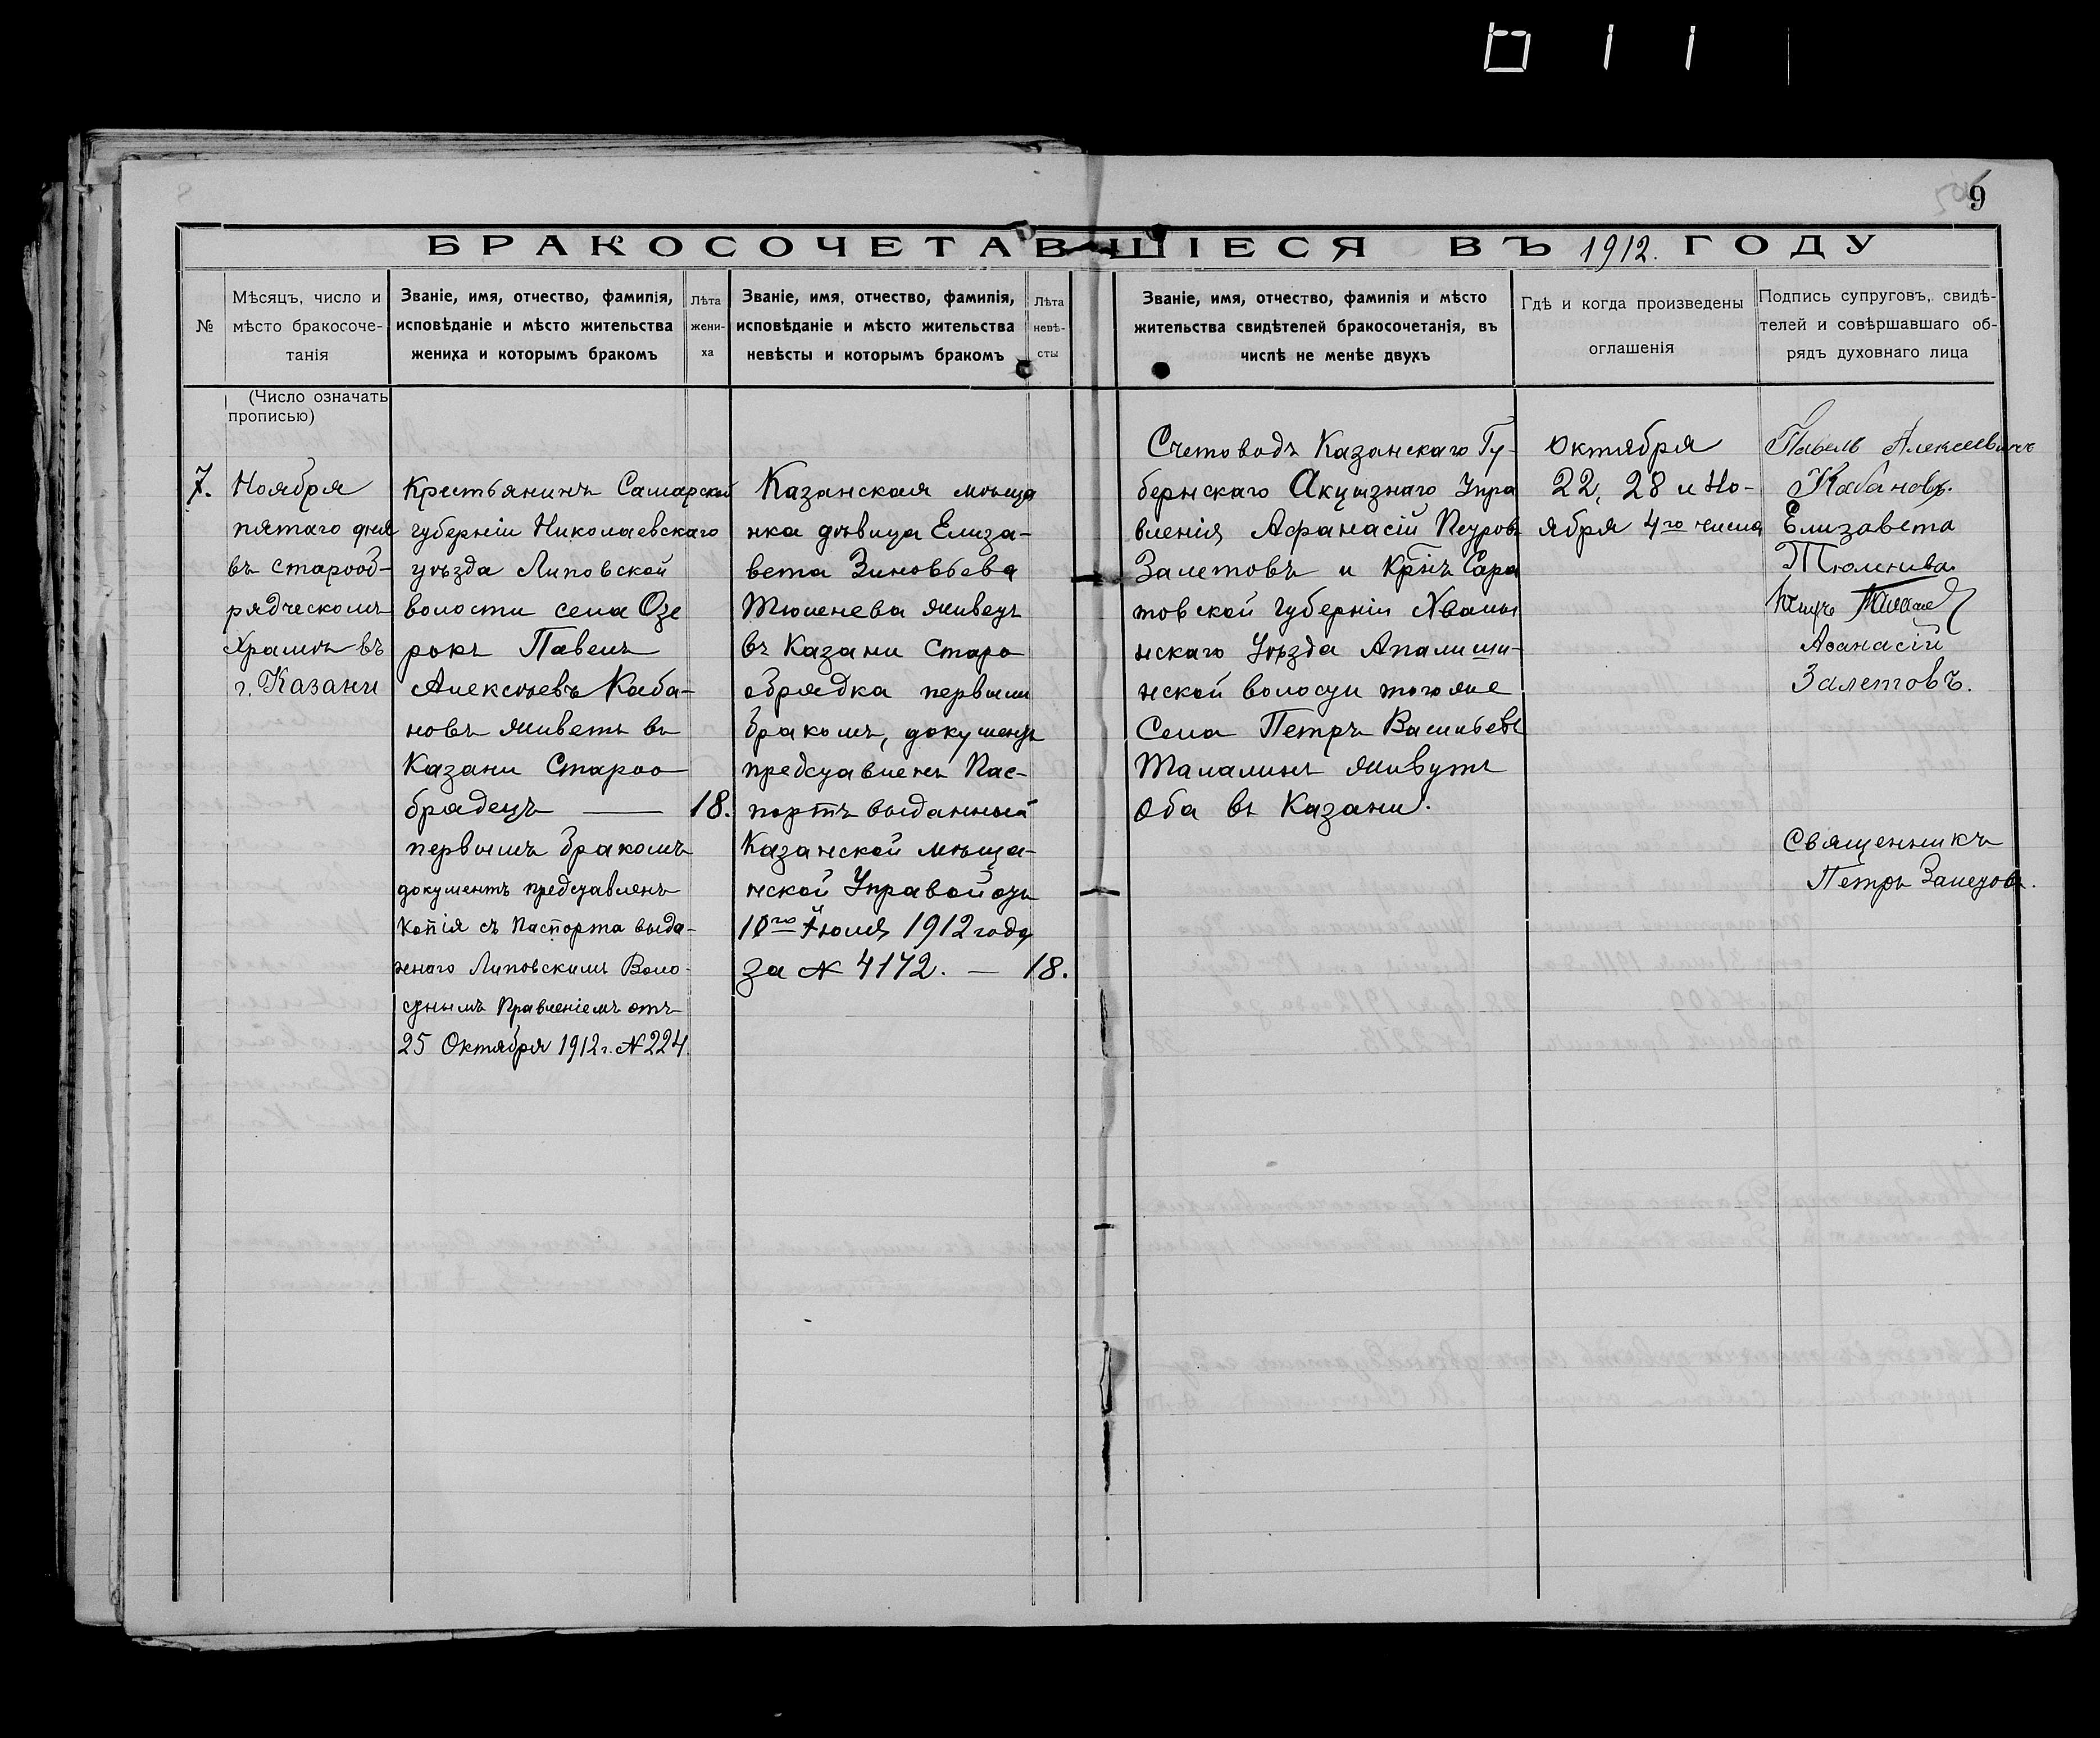 9
БРАКОСОЧЕТАВШІЕСЯ ВЪ 1912. ГОДУ
№
Мѣсяцъ, число и
мѣсто бракосоче-
танія
Званіе, имя, отчество, фамилія,
исповѣданіе и мѣсто жительства
жениха и которымъ бракомъ
Лѣта
жени-
ха
Званіе, имя, отчество, фамилія,
исповѣданіе и мѣсто жительства
невѣсты и которымъ бракомъ
Лѣта
невѣ-
сты
Званіе, имя, отчество, фамилія и мѣсто
жительства свидѣтелей бракосочетанія, въ
числѣ не менѣе двухъ
Гдѣ и когда произведены
оглашенія
Подпись супруговъ, свидѣ-
телей и совѣршавшаго об-
рядъ духовнаго лица
(Число означать
прописью)
7.
Ноября
пятаго дня
въ старооб-
рядческомъ
Храмѣ въ
г. Казани
Крестьянинъ Самарской
губерніи Николаевскаго
уѣзда Липовской
волости села Озе
рокъ Павелъ
Алексѣевъ Каба-
новъ живетъ въ
Казани Староо
брядецъ — 18.
первымъ бракомъ
документъ представленъ
Копія съ Паспорта выда-
ннаго Липовскимъ Воло-
стнымъ Правленіемъ отъ
25 Октября 1912 г. № 224
Казанская мѣща
нка дѣвица Елиза-
вета Зиновьева
Тюленева живетъ
въ Казани Старо
обрядка первымъ
бракомъ, документъ
представленъ Пас-
портъ выданный
Казанской мѣща-
нской Управой отъ
10го Июля 1912 года
за № 4172. — 18.
Счетоводъ Казанскаго Гу-
бернскаго Акцызнаго Упра
вленія Афанасій Петровъ
Залетовъ и Крнъ Сара
товской губерніи Хвалы
нскаго Уѣзда Апалиши-
нской волости того же
Села Петръ Васильевъ
Талалинъ живутъ
Оба въ Казани.
Октября
22, 28 и Но-
ября 4го числа
Павелъ Алексеевичъ
Кабановъ.
Елизавета
Тюленива.
Аѳанасій
Залетовъ.
Священникъ
Петръ Залетовъ.